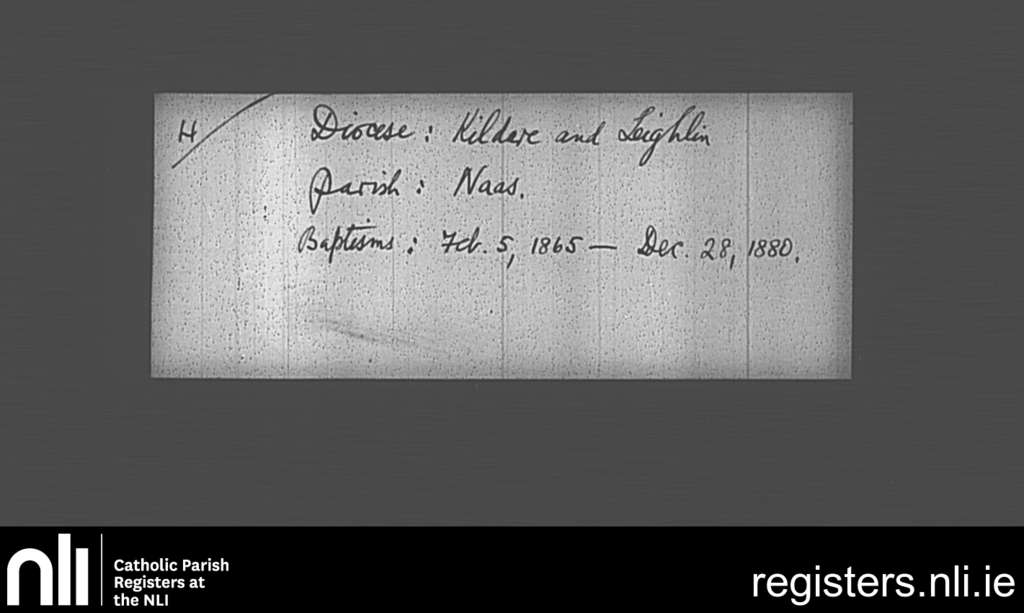 H
Diocese : Kildare and Leighlin
Parish : Naas.
Baptisms : Feb. 5, 1865 — Dec. 28, 1880.
nli
Catholic Parish
Registers at
the NLI
registers.nli.ie